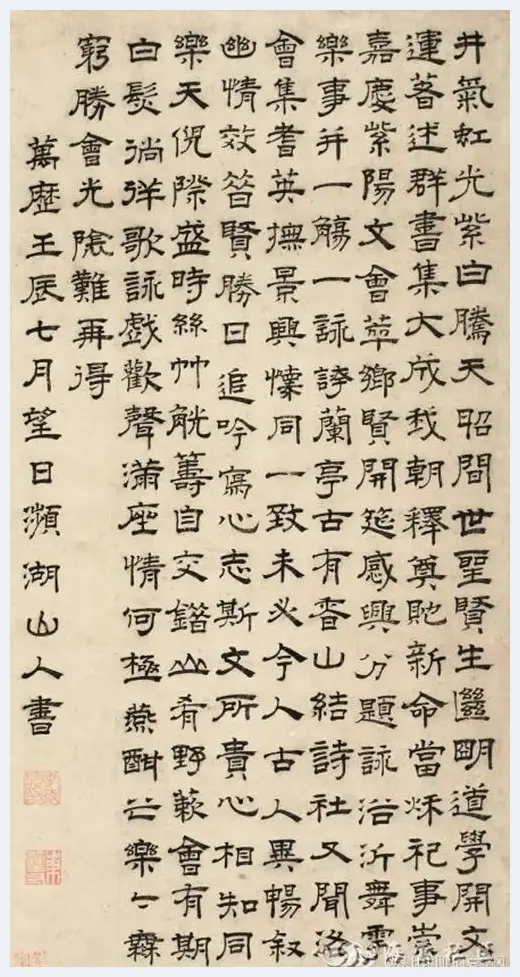 井氣虹光紫白騰天昭間世聖賢生繼明道學開文
運著述群書集大成我朝釋奠貤新命當秌祀事崇
嘉慶紫陽文會萃鄉賢開筵感興分題詠浴沂舞雩
樂事并一觴一詠誇蘭亭古有香山結詩社又聞洛
會集耆英撫景興懷同一致未必今人古人異暢敘
幽情效昝賢勝日追吟寫心志斯文所貴心相知同
樂天倪際盛時絲竹觥籌自交錯山肴野蔌會有期
白髮徜徉歌詠戲歡聲滿座情何極燕酣亡樂樂無
窮勝會光陰難再得
萬歷壬辰七月望日瀕湖山人書